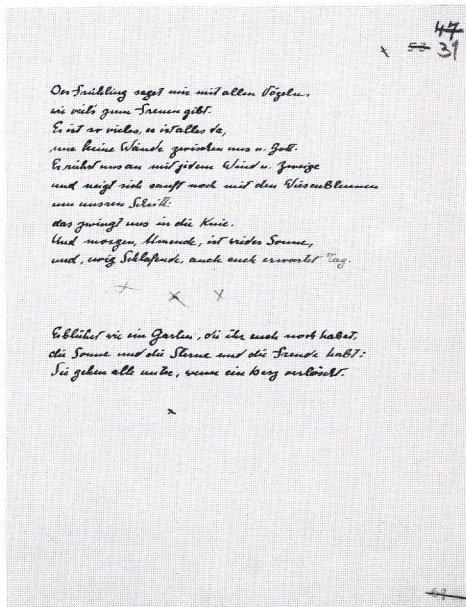 47
x 53 31
Der Frühling saget uns mit allen Vögeln,
wie viel's zum Freuen gibt.
Es ist so vieles, es ist alles da,
nur keine Wände zwischen uns u. Gott.
Er rührt uns an mit jedem Wind u. Zweige
und neigt sich sanft noch mit den Wiesenblumen
um unsren Schritt:
das zwingt uns in die Knie.
Und morgen, ist wieder Sonne,
und, ewig Schlafende, auch euch erwartet Tag.
x x x
Erblühet wie ein Garten, die ihr euch noch habet,
die Sonne und die Sterne und die Freude habt:
Sie gehen alle unter, wenn ein Herz verlöscht.
x